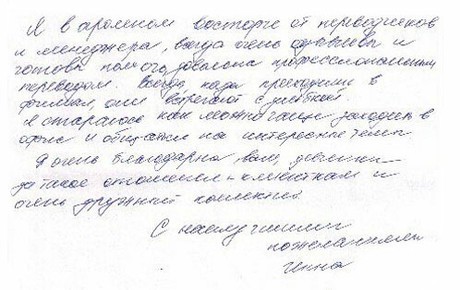 Я в огромном восторге от переводчиков
и менеджера, всегда очень отзывчивы и
готовы помочь, довольна профессиональным
переводом. Всегда когда приходишь в
филиал, они встречают с улыбкой.
Я стараюсь как можно чаще заходить в
офис и общаться на интересные темы.
Я очень благодарна, вам, девочки
за такое отношение к клиенткам и
очень дружный коллектив.
С наилучшими
пожеланиями
Инна